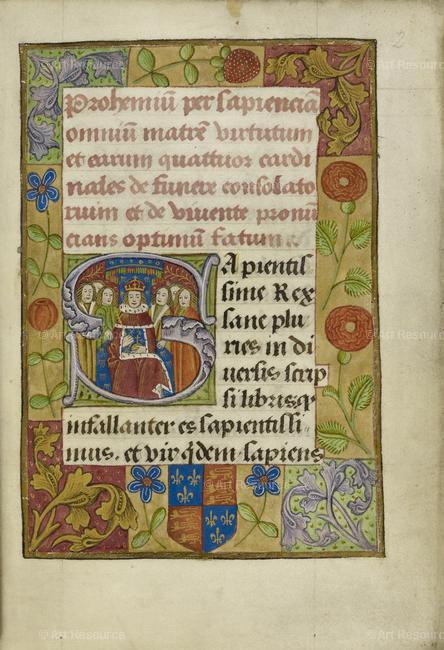 Prohemiū per sapienciā
omniū matrē virtutum
et earum quattuor cardi
nales de funere consolato
rium et de viuente pronū
cians optimū fatum.
Sapientis
sime Rex
sane plu
ries in di
uersis scrip
si librisq
infallanter es sapientissi
mus. et vir q̇dem sapiens
2
© Art Resource
© Art Resource
© Art Resource
© Art Resource
© Art Resource
© Art Resource